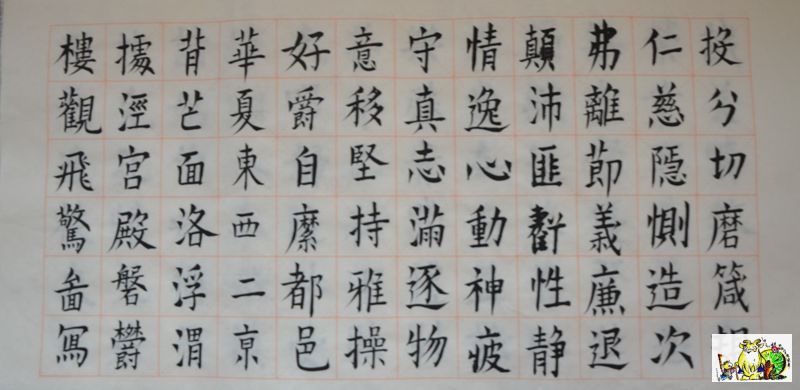 投分切磨箴
仁慈隱惻造次
弗離莭義廉退
顛沛匪虧性静
情逸心動神疲
守真志滿逐物
意移堅持雅操
好爵自縻都邑
華夏東西二亰
背芒面洛浮渭
據涇宮殿磐鬱
樓觀飛驚啚冩